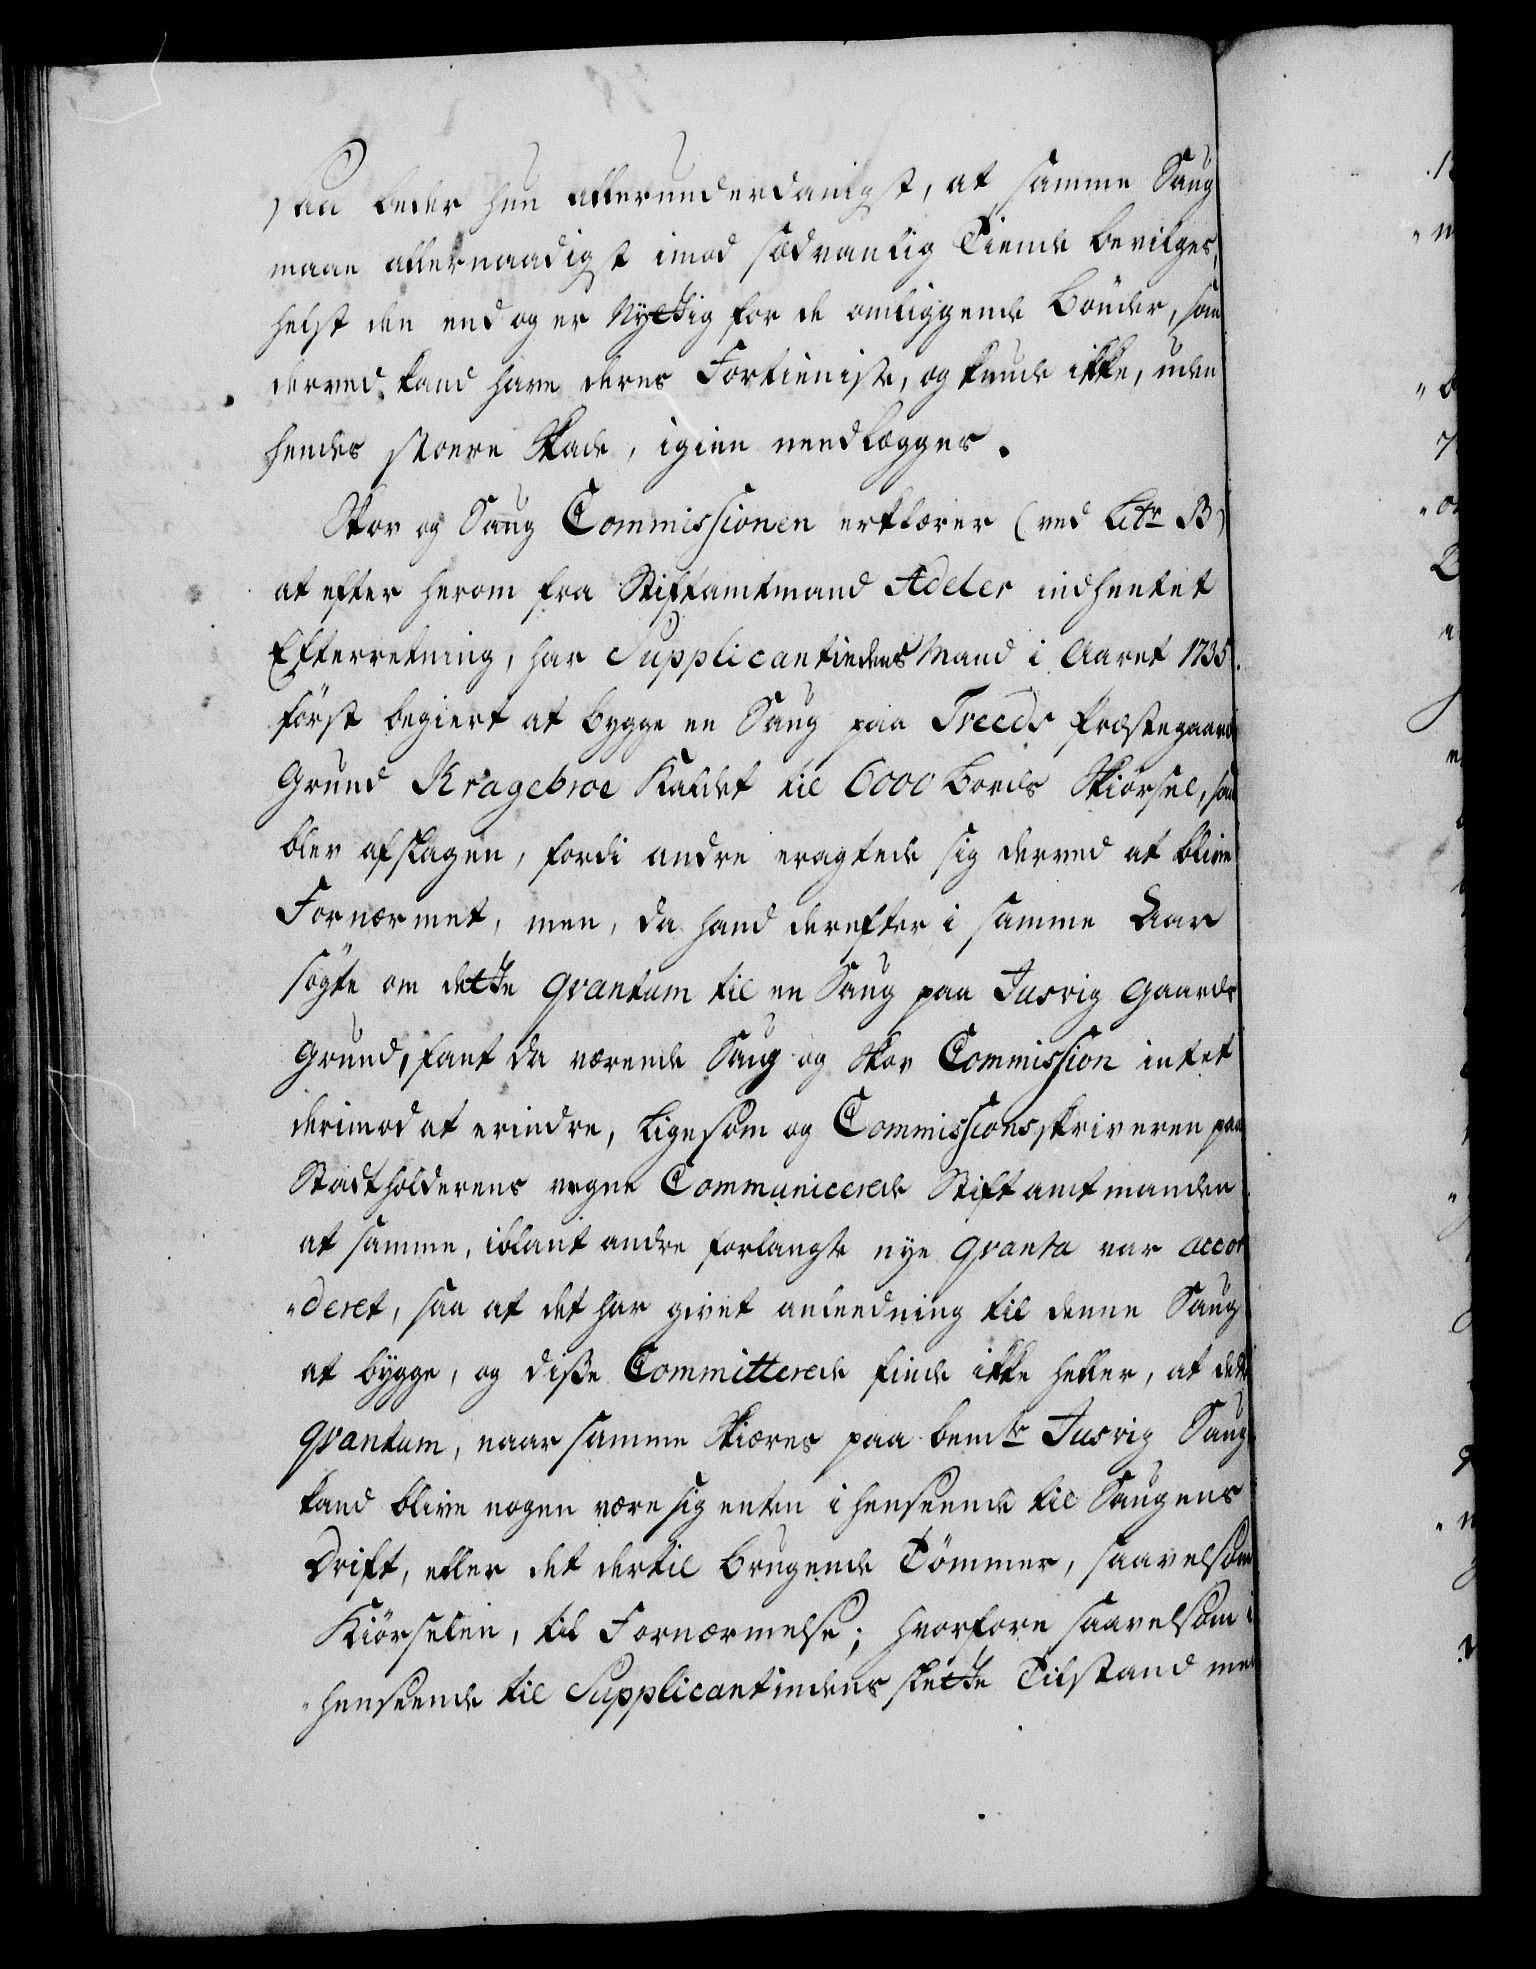 saa beder hun allerunderdanigst, at samme Saug
maae allernaadigst imod sædvanlig Tiende bevilges,
helst den end og er Nyttig for de omliggende Bönder, som
derved kand have deres Fortieniste, og kunde ikke, uden
hendes störe Skade, igien needlægges.
Skov og Saug Commissionen erklærer (ved Litr B)
at efter herom fra Stiftamtmand Adeler indhentet
Efterretning, har Supplicantindens Mand i Aaret 1735.
först begiert at bygge en Saug paa Treeds Præstegaards
Grund Kragebroe Kaldet til 6000 Bords Skiörsel, som
blev afslagen, fordi andre eragtede sig derved at blive
Fornærmet, men, da hand derefter i samme Aar
sögte om dette qvantum til en Saug paa Jusvig Gaards
Grund, fant da værende Saug og Skov Commission intet
derimod at erindre, ligesom og Commissionsskriveren paa
Stadtholderens vegne Communicerede Stiftamtmanden
at samme, iblant andre forlangte nye qvanta var accor
"deret, saa at det har givet anleedning til denne Saug
at bygge, og diße Committerede finde ikke heller, at dette
qvantum, naar samme Skiæres paa bemte Jusvig Saug
kand blive nogen være sig enten i henseende til Saugens
Drift, eller det dertil brugende Tömmer, saavelsom
Kiörselen, til Fornærmelse; hvorfore saavelsom i
henseende til Supplicantindens slette Tilstand med